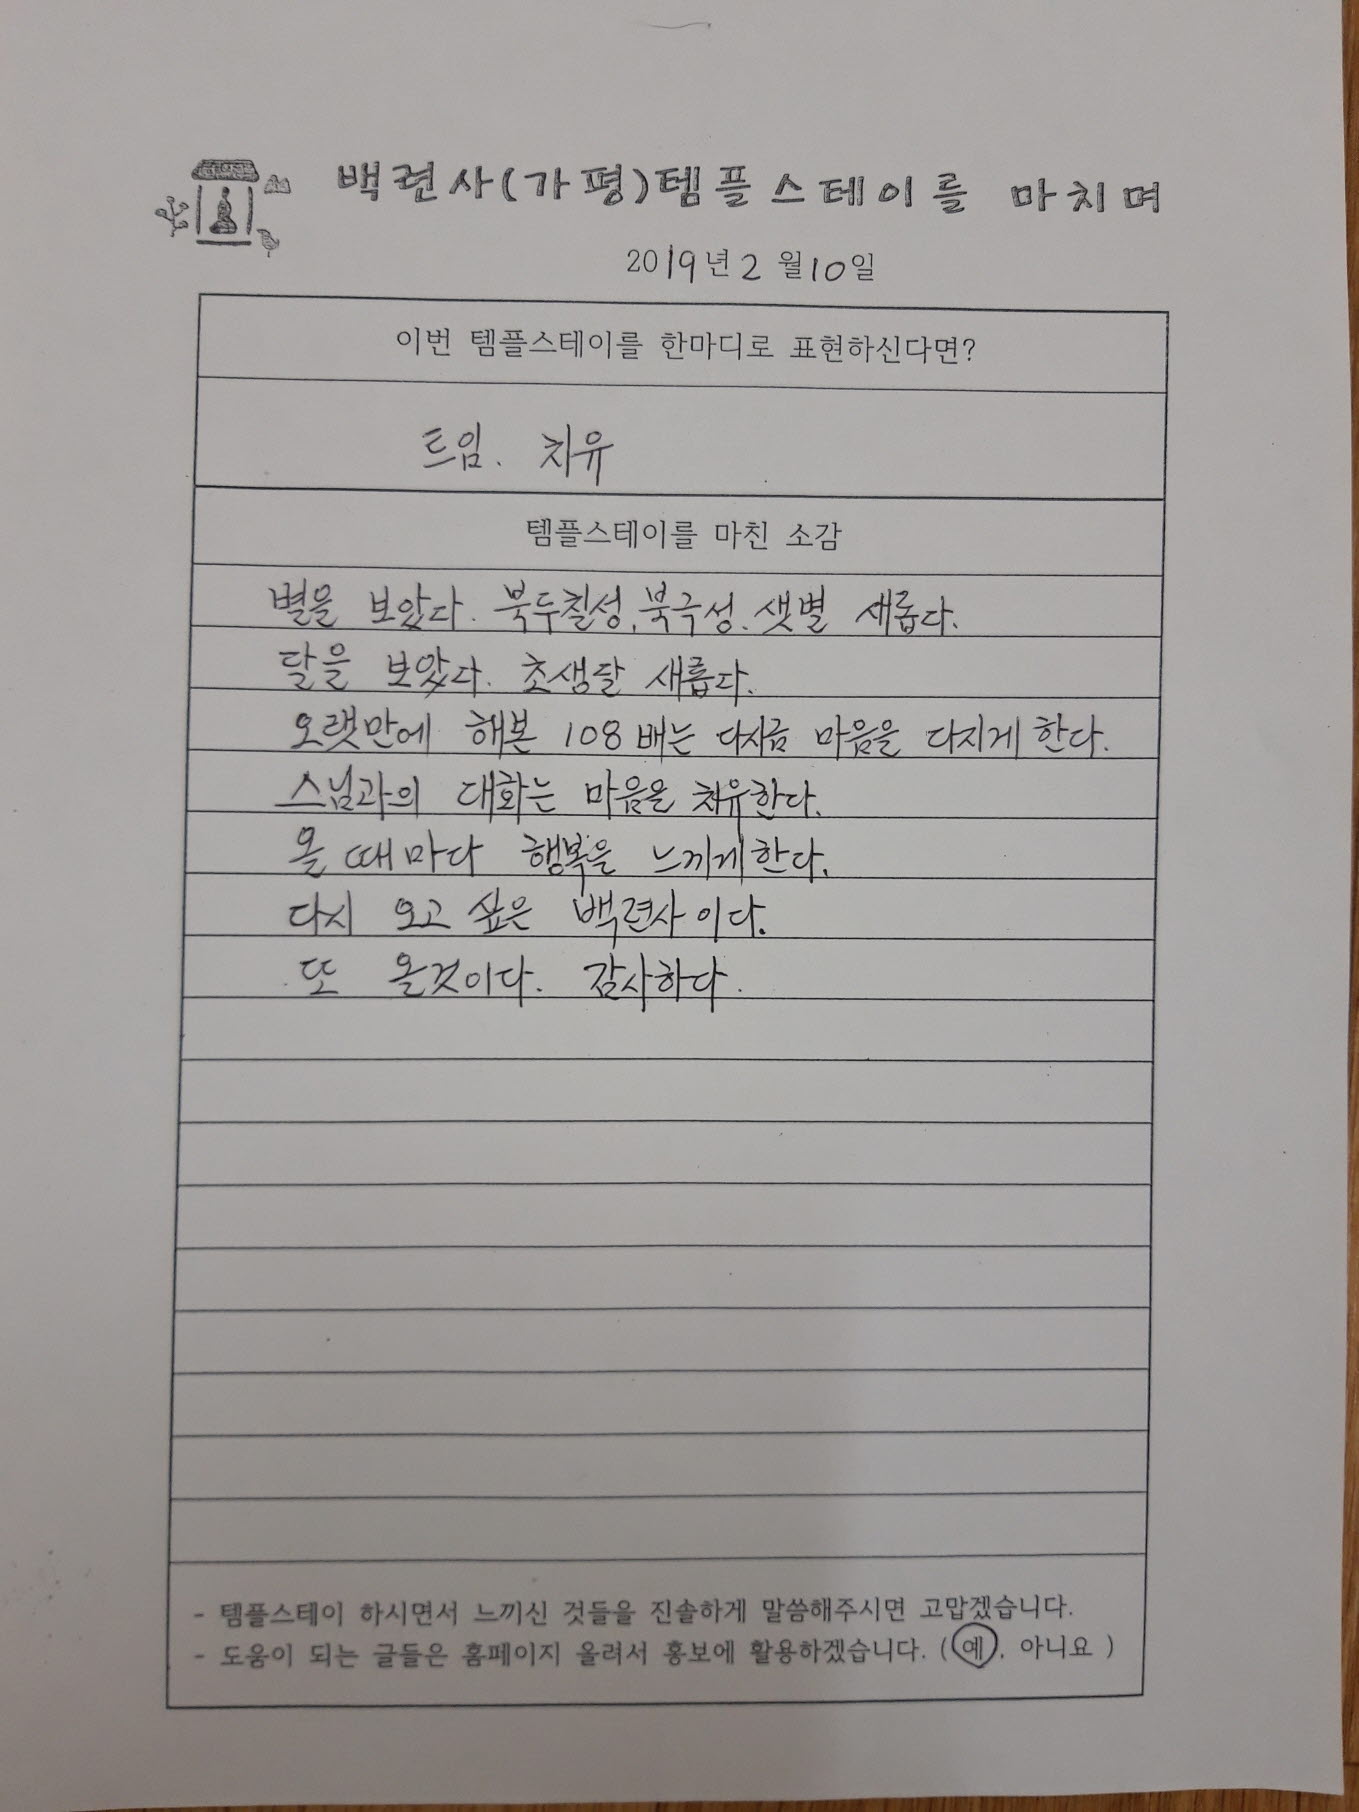 백련사(가평)템플스테이를 마치며
2019년 2월 10일
이번 템플스테이를 한마디로 표현하신다면?
트임. 치유
템플스테이를 마친 소감
별을 보았다. 북두칠성, 북극성. 샛별 새롭다.
달을 보았다. 초생달 새롭다.
오랫만에 해본 108배는 다시금 마음을 다지게 한다.
스님과의 대화는 마음을 치유한다.
올 때마다 행복을 느끼게 한다.
다시 오고 싶은 백련사이다.
또 올것이다. 감사하다.
- 템플스테이 하시면서 느끼신 것들을 진솔하게 말씀해주시면 고맙겠습니다.
- 도움이 되는 글들은 홈페이지 올려서 홍보에 활용하겠습니다. (예, 아니요 )